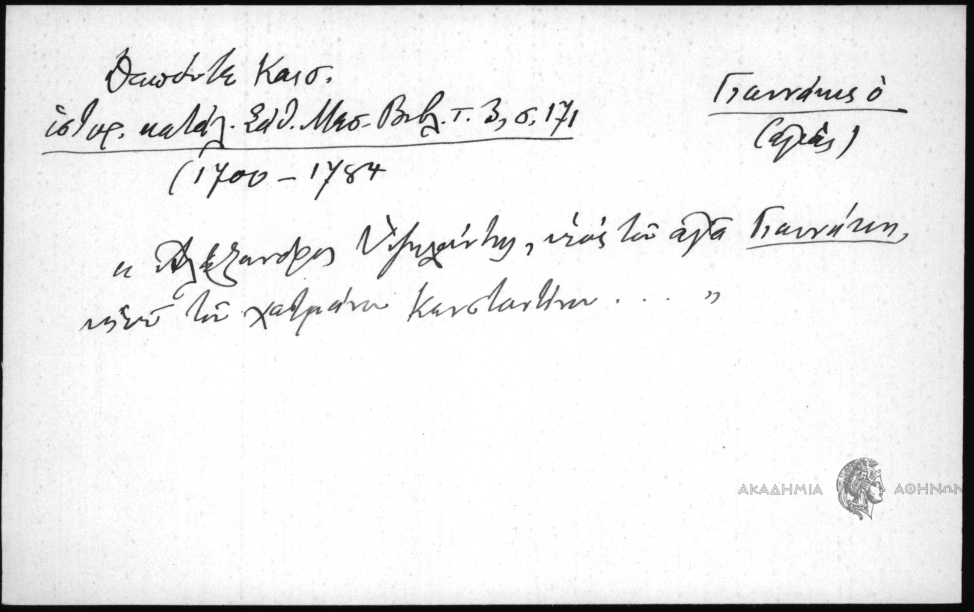 Δαπόντε Καισ.
ἱστορ. κατάλ. Σάθ. Μεσ. Βιβλ. τ. 3, σ. 171
(1700 – 1784
Γιαννάκης ὁ
« Ἀλέξανδρος Ὑψηλάντης, υἱὸς τοῦ ἀγᾶ Γιαννάκη,
τοῦ χατμάνου Κωνσταντίνου . . . »
ΑΚΑΔΗΜΙΑ ΑΘΗΝΩΝ